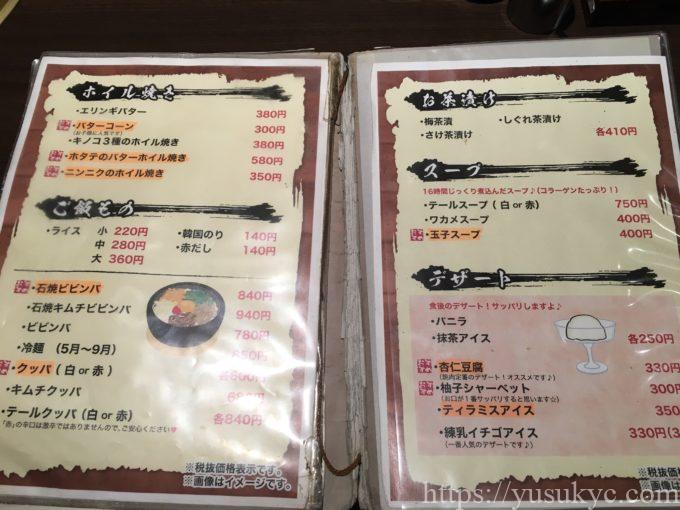 ホイル焼き
・エリンギバター 380円
・バターコーン 300円
(お子様に人気です)
・キノコ3種のホイル焼き 380円
・ホタテのバターホイル焼き 580円
・ニンニクのホイル焼き 350円
ご飯もの
・ライス 小 220円
中 280円
大 360円
・韓国のり 140円
・赤だし 140円
・石焼ビビンバ 840円
・石焼キムチビビンバ 940円
・ビビンバ 780円
・冷麺 (5月〜9月) 850円
・クッパ ( 白 or 赤 ) 各600円
・キムチクッパ 680円
・テールクッパ (白 or 赤) 各840円
「赤」の辛口は激辛ではありませんので、ご安心ください
※税抜価格表示です。
※画像はイメージです。
お茶漬け
・梅茶漬 ・しぐれ茶漬け
・さけ茶漬け 各410円
スープ
16時間じっくり煮込んだスープ♪(コラーゲンたっぷり!)
・テールスープ ( 白 or 赤) 750円
・ワカメスープ 400円
・玉子スープ 400円
デザート
食後のデザート!サッパリしますよ♪
・バニラ
・抹茶アイス 各250円
・杏仁豆腐 330円
(焼肉定番のデザート!オススメです)
・柚子シャーベット 300円
(お口が1番サッパリすると思います☆)
・ティラミスアイス 350
・練乳イチゴアイス 330円(3
(一番人気のデザートです)
※税抜価格
※画像は
https://yusukyc.com/